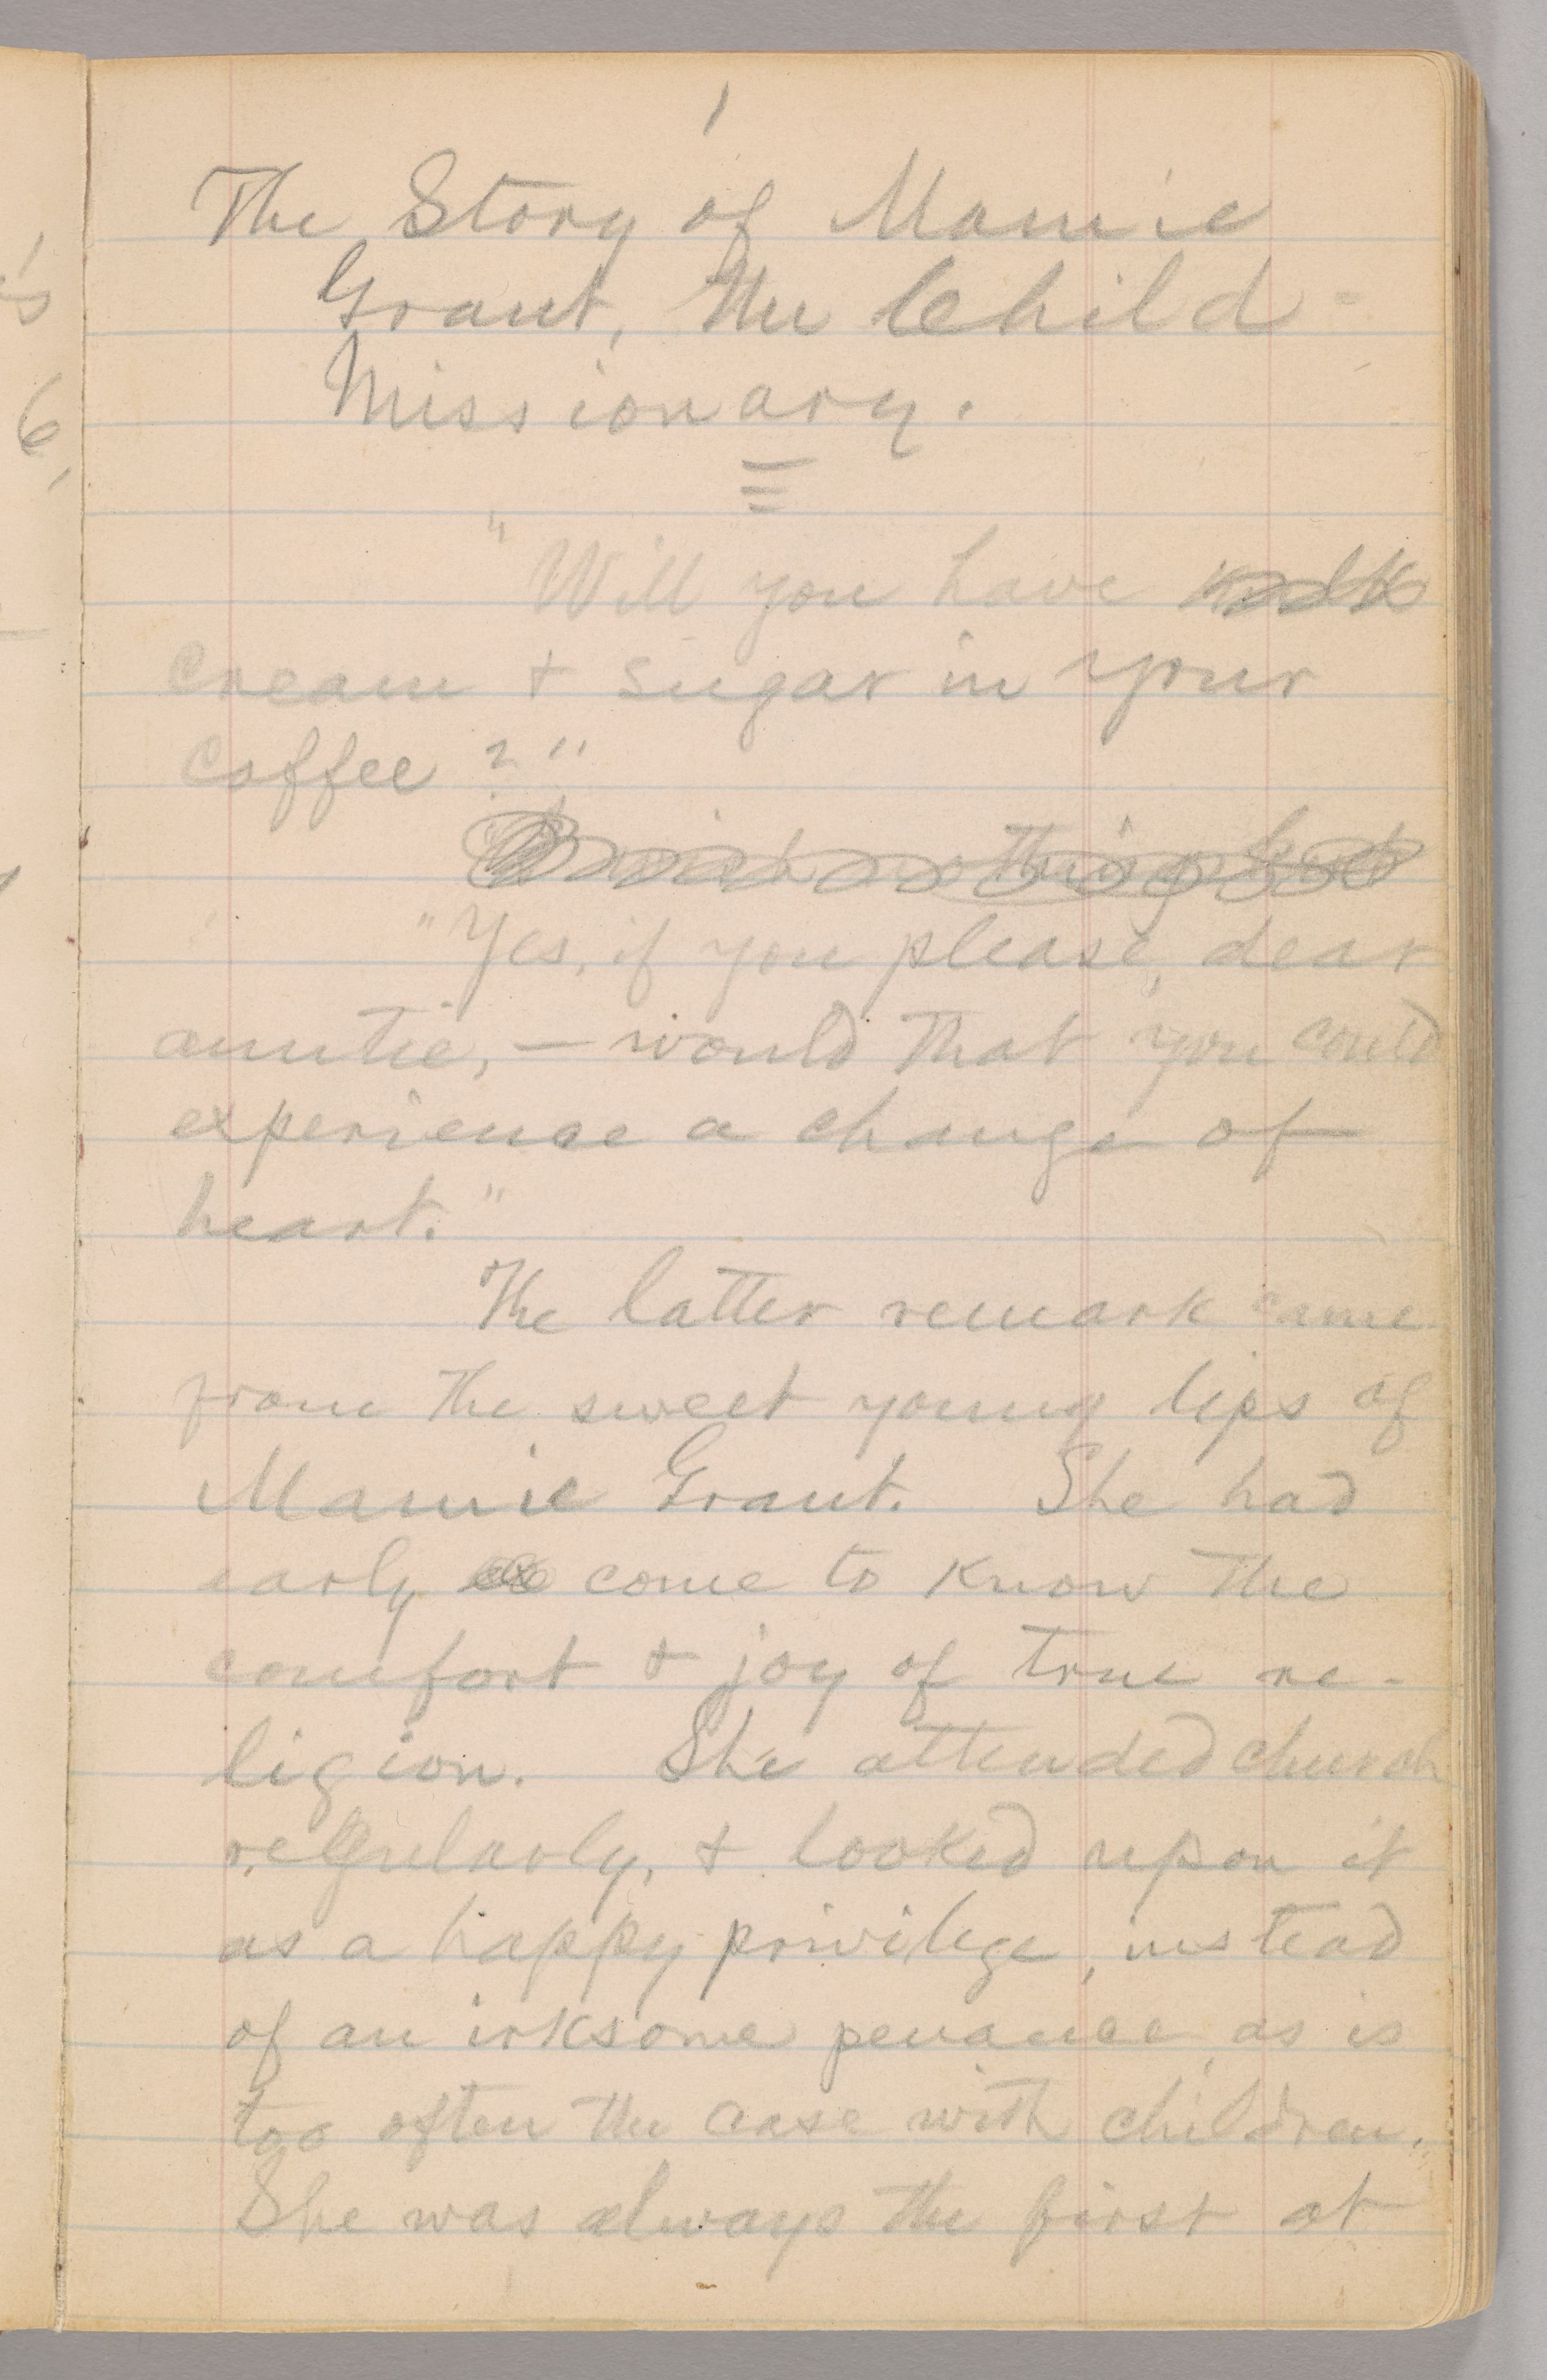 1
The Story of Mamie
Grant, the Child-
Missionary.
"Will you have milk
cream & sugar in your
coffee?"
nothing but
"Yes, if you please, dear
auntie, — would that you could
experience a change of
heart."
The latter remark came
from the sweet young lips of
Mamie Grant. She had
early come to know the
comfort & joy of true re-
ligion. She attended church
regularly, & looked upon it
as a happy privilege, instead
of an irksome penance, as is
too often the case with children.
She was always the first at
6,